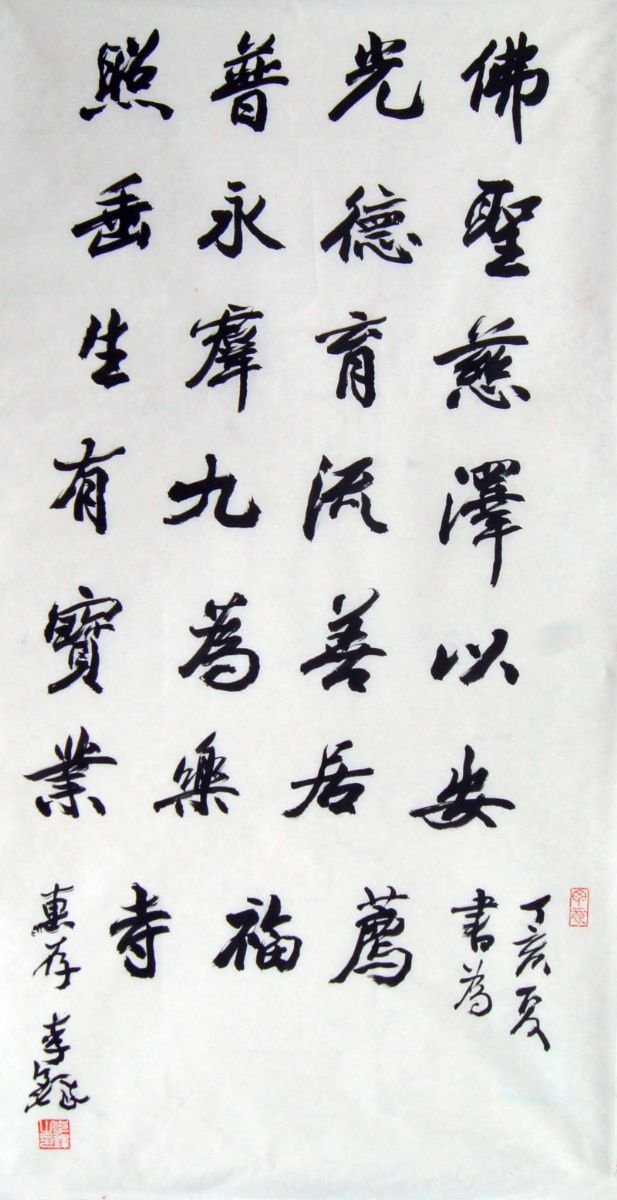 佛光普照
聖德永垂
慈育羣生
澤流九有
以善為寶
安居樂業
丁亥夏
書為
薦福寺
惠存 李